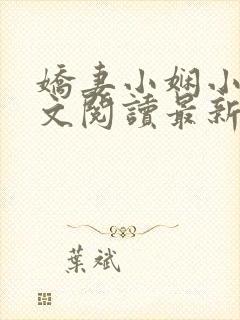 嬌妻小嫻小
文閱讀最新
葉斌